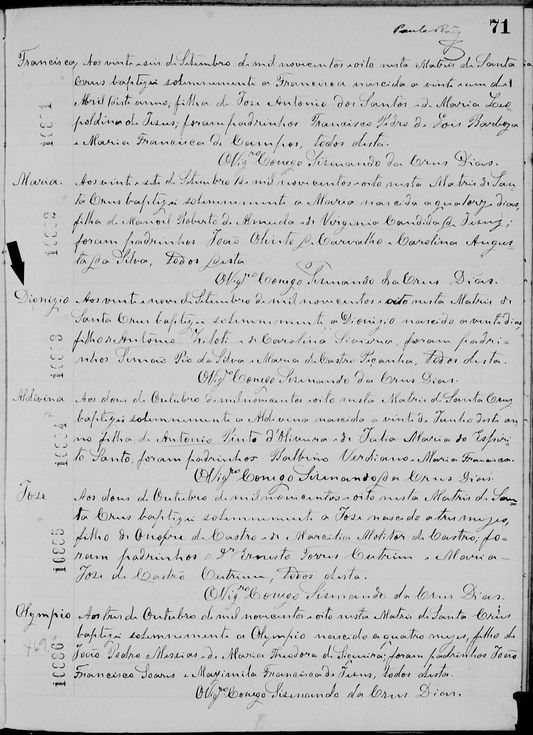 71
Francisca Aos vinte e seis de Setembro de mil novecentos e oito nesta Matris de Santa
Crus baptizei solemnemente a Francisca nascida a vinte e um de
Abril deste anno, filha de Jose Antonio dos Santos e de Maria Leo
poldina de Jesus; foram padrinhos Francisco Pedro de Barboza
e Maria Francisca de Campos, todos desta.
O Vigro Conego Sizenando da Crus Dias.
Maria. Aos vinte e sete de Setembro de mil novecentos e oito nesta Matris de San
ta Crus baptizei solemnemente a Maria nascida a quatorze dias,
filha de Manoel Roberto de Almeida e de Virginia Candida de Jesus;
foram padrinhos João Olinto de Carvalho e Carolina Augus
ta da Silva, todos desta
O Vigro Conego Sizenando da Crus Dias.
Dionizio Aos vinte e nove de Setembro de mil novecentos e oito nesta Matris de
Santa Crus baptizei solemnemente a Dionizio nascido a vinte dias,
filho de Antonio e de Carolina Siviria, foram padri-
nhos Simão Pio da Silva e Maria de Castro Peçanha, todos desta.
O Vigro Conego Sizenando da Crus Dias.
Aldivina Aos dous de Outubro de mil novecentos e oito nesta Matris de Santa Crus
baptizei solemnemente a Aldivina nascida a vinte de Junho deste an
no filha de Antonio Pinto d'Oliveira e de Julia Maria do Espiri
to Santo, foram padrinhos Balbino Verdiano e Maria Francisca.
O Vigro Conego Sizenando da Crus Dias.
Jose Aos dous de Outubro de mil novecentos e oito nesta Matris de San
ta Crus baptizei solemnemente a Jose nascido a tres mezes,
filho de Onofre de Castro e de Marcilia Molitor de Castro; fo-
ram padrinhos o Dr Ernesto Torres Cutrim e Maria
Jose de Castro Cutrim, todos desta.
O Vigro Conego Sizenando da Crus Dias.
Olympio Aos tres de Outubro de mil novecentos e oito nesta Matris de Santa Crus
baptizei solemnemente a Olympio nascido a quatro mezes, filho de
João Pedro Messias e de Maria Theodora de Siqueira; foram padrinhos João
Francisco Soares e Maximila Francisca de Jesus, todos desta.
O Vigro Conego Sizenando da Crus Dias.